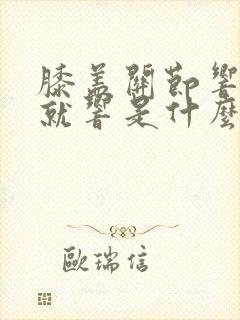 膝盖關節響
就響是什麼
歐瑞信